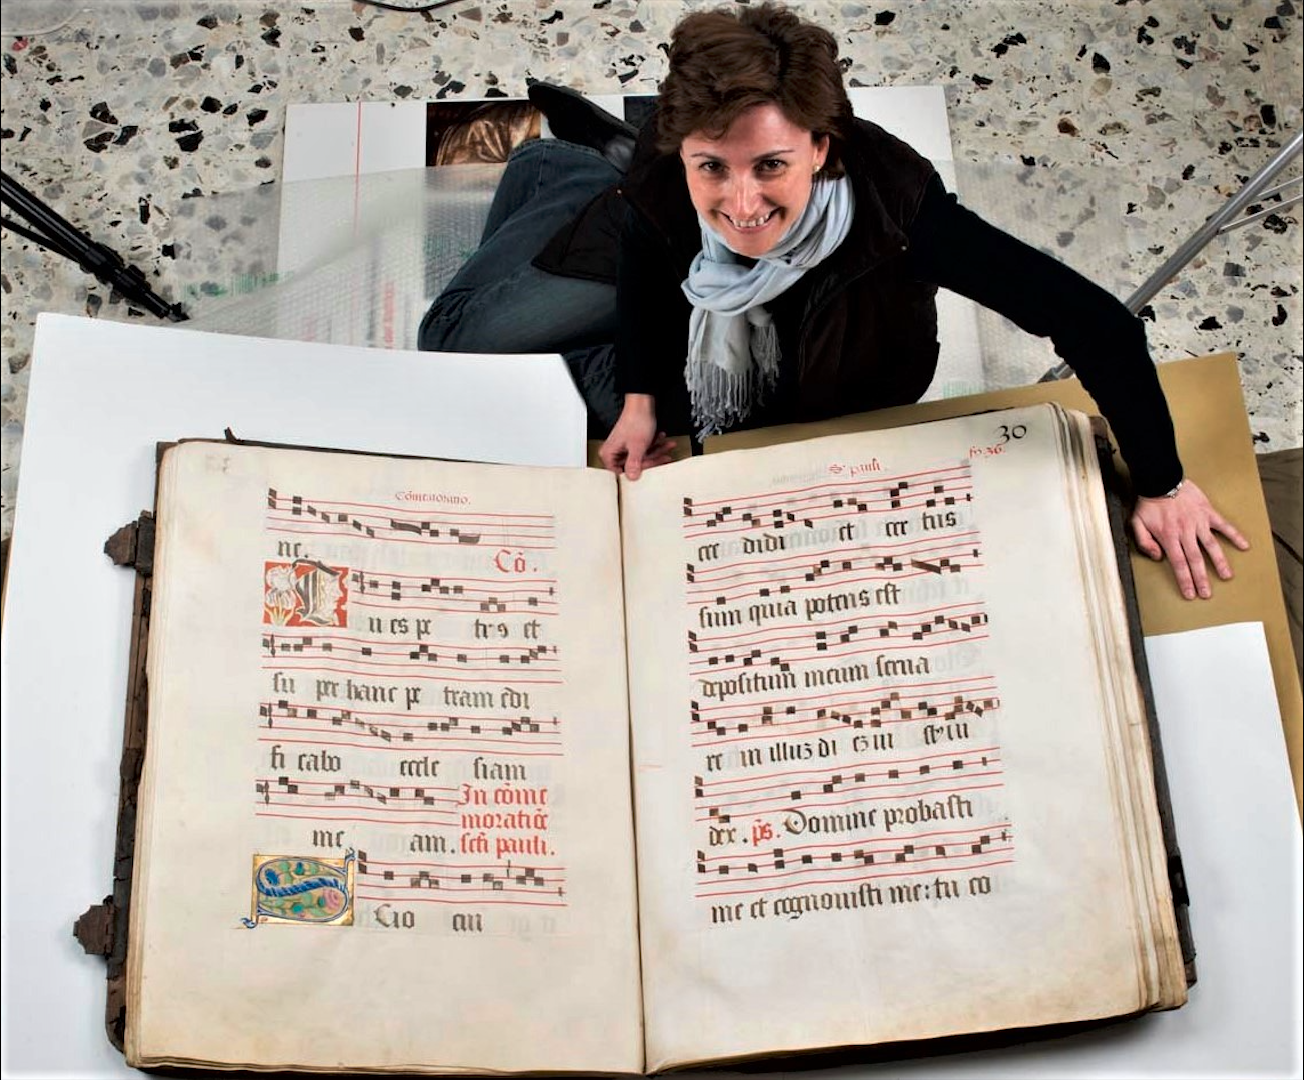 Cōmemoratio.
ne. Cō.
Tu es pe trus et
su per hanc pe tram edi
fi cabo eccle siam
me am. In cōme
moratiōe
scti pauli.
Scio cui
30
S. pauli.
fo. 36.
cre didi et cer tus
sum quia potens est
depositum meum serua
re in illuz di ez iu sty iu
dex . ps. Domine probasti
me et cognouisti me: tu co